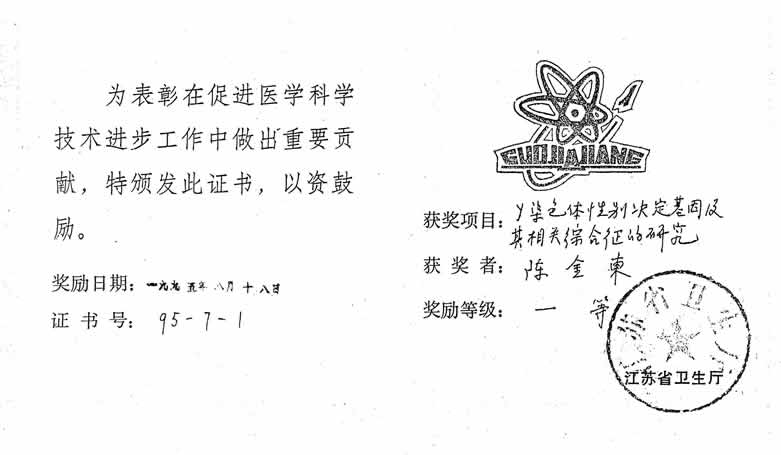 为表彰在促进医学科学
技术进步工作中做出重要贡
献，特颁发此证书，以资鼓
励。
奖励日期：一九九五年八月十八日
证书号：95-7-1
GUOJIAJIANG
获奖项目：y染色体性别决定基因及
其相关综合征的研究
获奖者：陈金东
奖励等级：一等
江苏省卫生厅
江苏省卫生厅